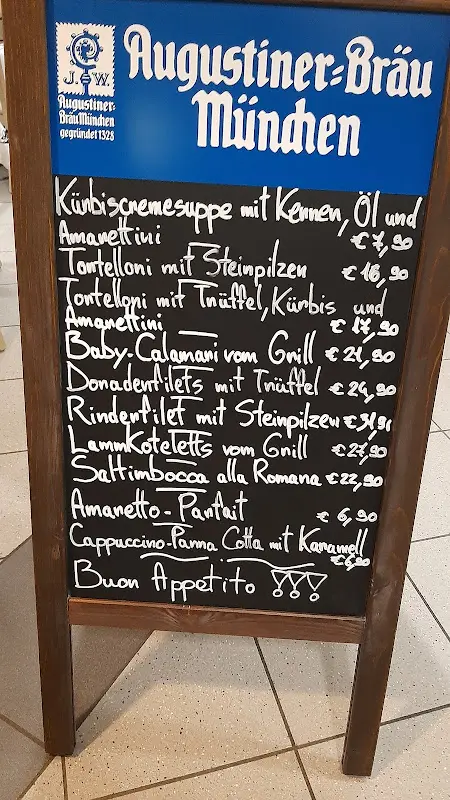 J. W.
Augustiner-
Bräu München
gegründet 1328
Augustiner-Bräu
München
Kürbiscremesuppe mit Kernen, Öl und
Amarettini € 7,90
Tortelloni mit Steinpilzen € 16,90
Tortelloni mit Trüffel, Kürbis und
Amarettini € 17,90
Baby-Calamari vom Grill € 21,90
Doradenfilets mit Trüffel € 24,90
Rinderfilet mit Steinpilzen € 31,90
Lammkoteletts vom Grill € 27,90
Saltimbocca alla Romana € 22,90
Amaretto-Parfait € 6,90
Cappuccino-Panna Cotta mit Karamell
€ 6,90
Buon Appetito